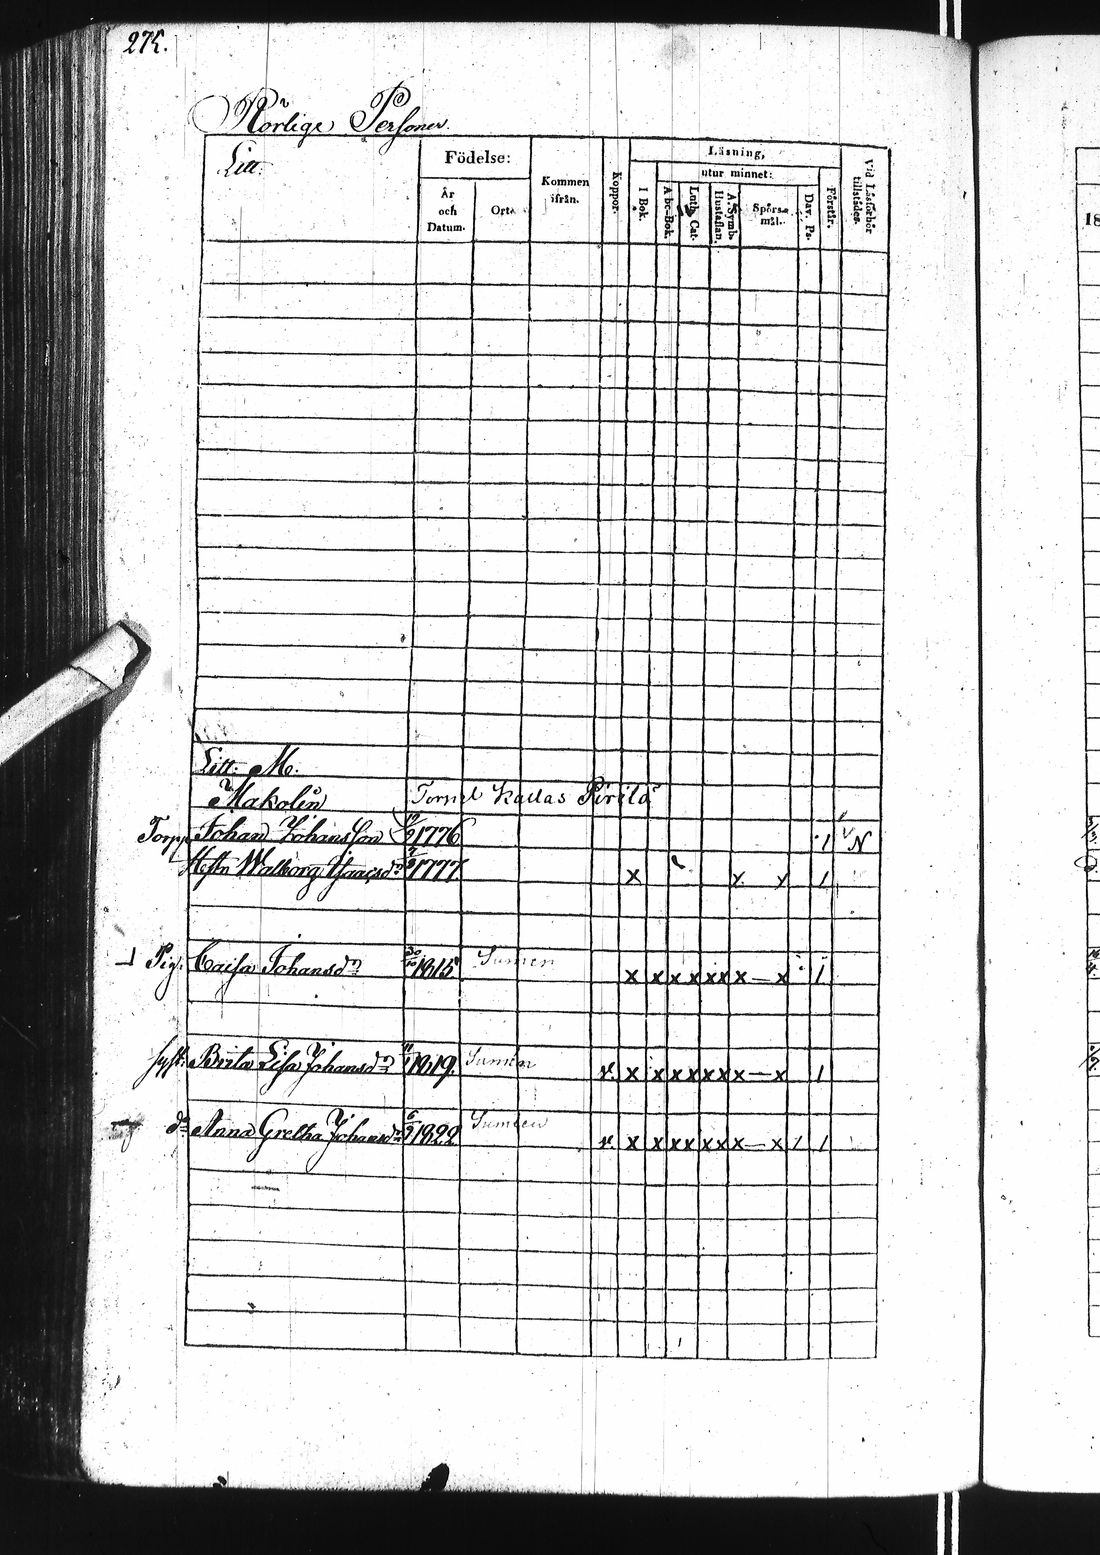 275.
Rörlige Personer.
Litt.
Födelse:
År
och
Datum.
Ort.
Kommen
ifrån.
Koppor.
Läsning,
utur minnet:
I Bok.
Abc-Bok.
Luth. Cat.
A. Symb.
Hustaflan.
Spörs-
mål.
Dav. Ps.
Förstår.
Vid Läsförhör
tillstädes.
18
Litt. M.
Makolin Torpet kallas Pirilä
Torp. Johan Johansson 1776 1 N
Hustn Walborg Isaacsdr 1777 x x x 1
Pig. Caisa Johansdr 1815 Sumen x x x x x x x — x 1
syst: Brita Lisa Johansdr 1819. Sumen v. x x x x x x x — x 1
do Anna Gretha Johansdr 1822 v. x x x x x x x — x 1 1